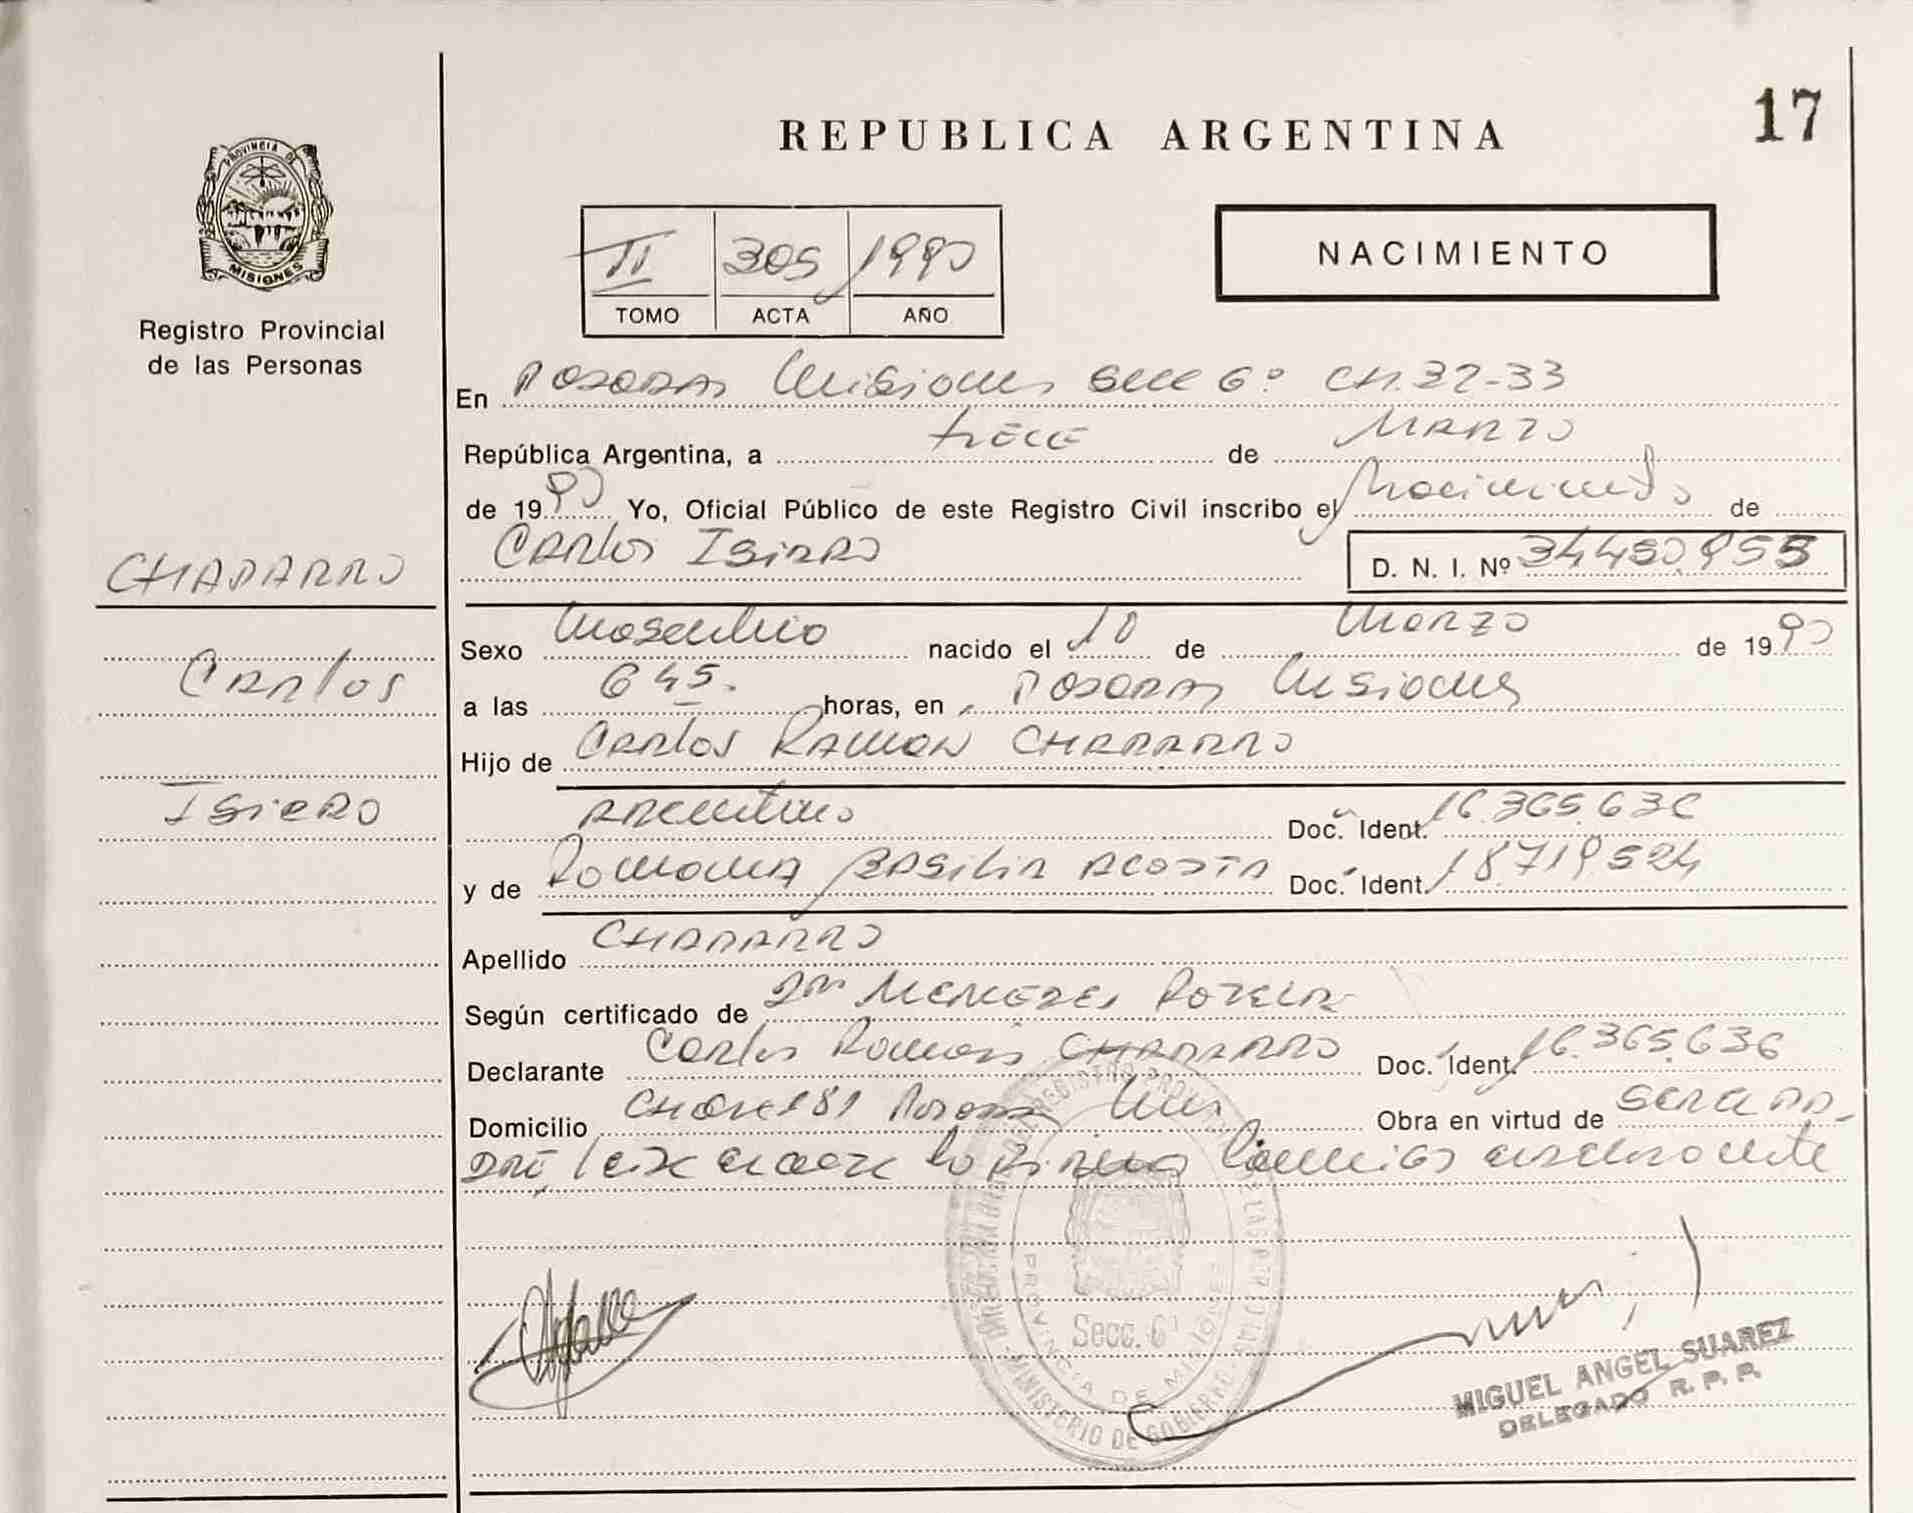 REPUBLICA ARGENTINA
17
PROVINCIA DE
MISIONES
Registro Provincial
de las Personas
II 305 1990
TOMO ACTA AÑO
NACIMIENTO
En Posadas Misiones Secc 6º CH.32-33
República Argentina, a trece de Marzo
de 1990 Yo, Oficial Público de este Registro Civil inscribo el Nacimiento de
Carlos Isidro
D. N. I. Nº
CHAPARRO
Carlos
Isidro
Sexo Masculino nacido el 10 de Marzo de 1990
a las 6 45. horas, en Posadas Misiones
Hijo de Carlos Ramon CHAPARRO
Argentino Doc. Ident. 16.365.636
y de Romona Basilia Acosta Doc. Ident. 18.719524
Apellido CHAPARRO
Según certificado de
Declarante Carlos Ramon CHAPARRO Doc. Ident. 16.365.636
Domicilio 181 Posadas Mnes Obra en virtud de ser el pa-
dre, leida el acta la firma conmigo el declarante
Secc. 6ª
PROVINCIA DE MISIONES
MINISTERIO DE GOBIERNO
MIGUEL ANGEL SUAREZ
DELEGADO R. P. P.